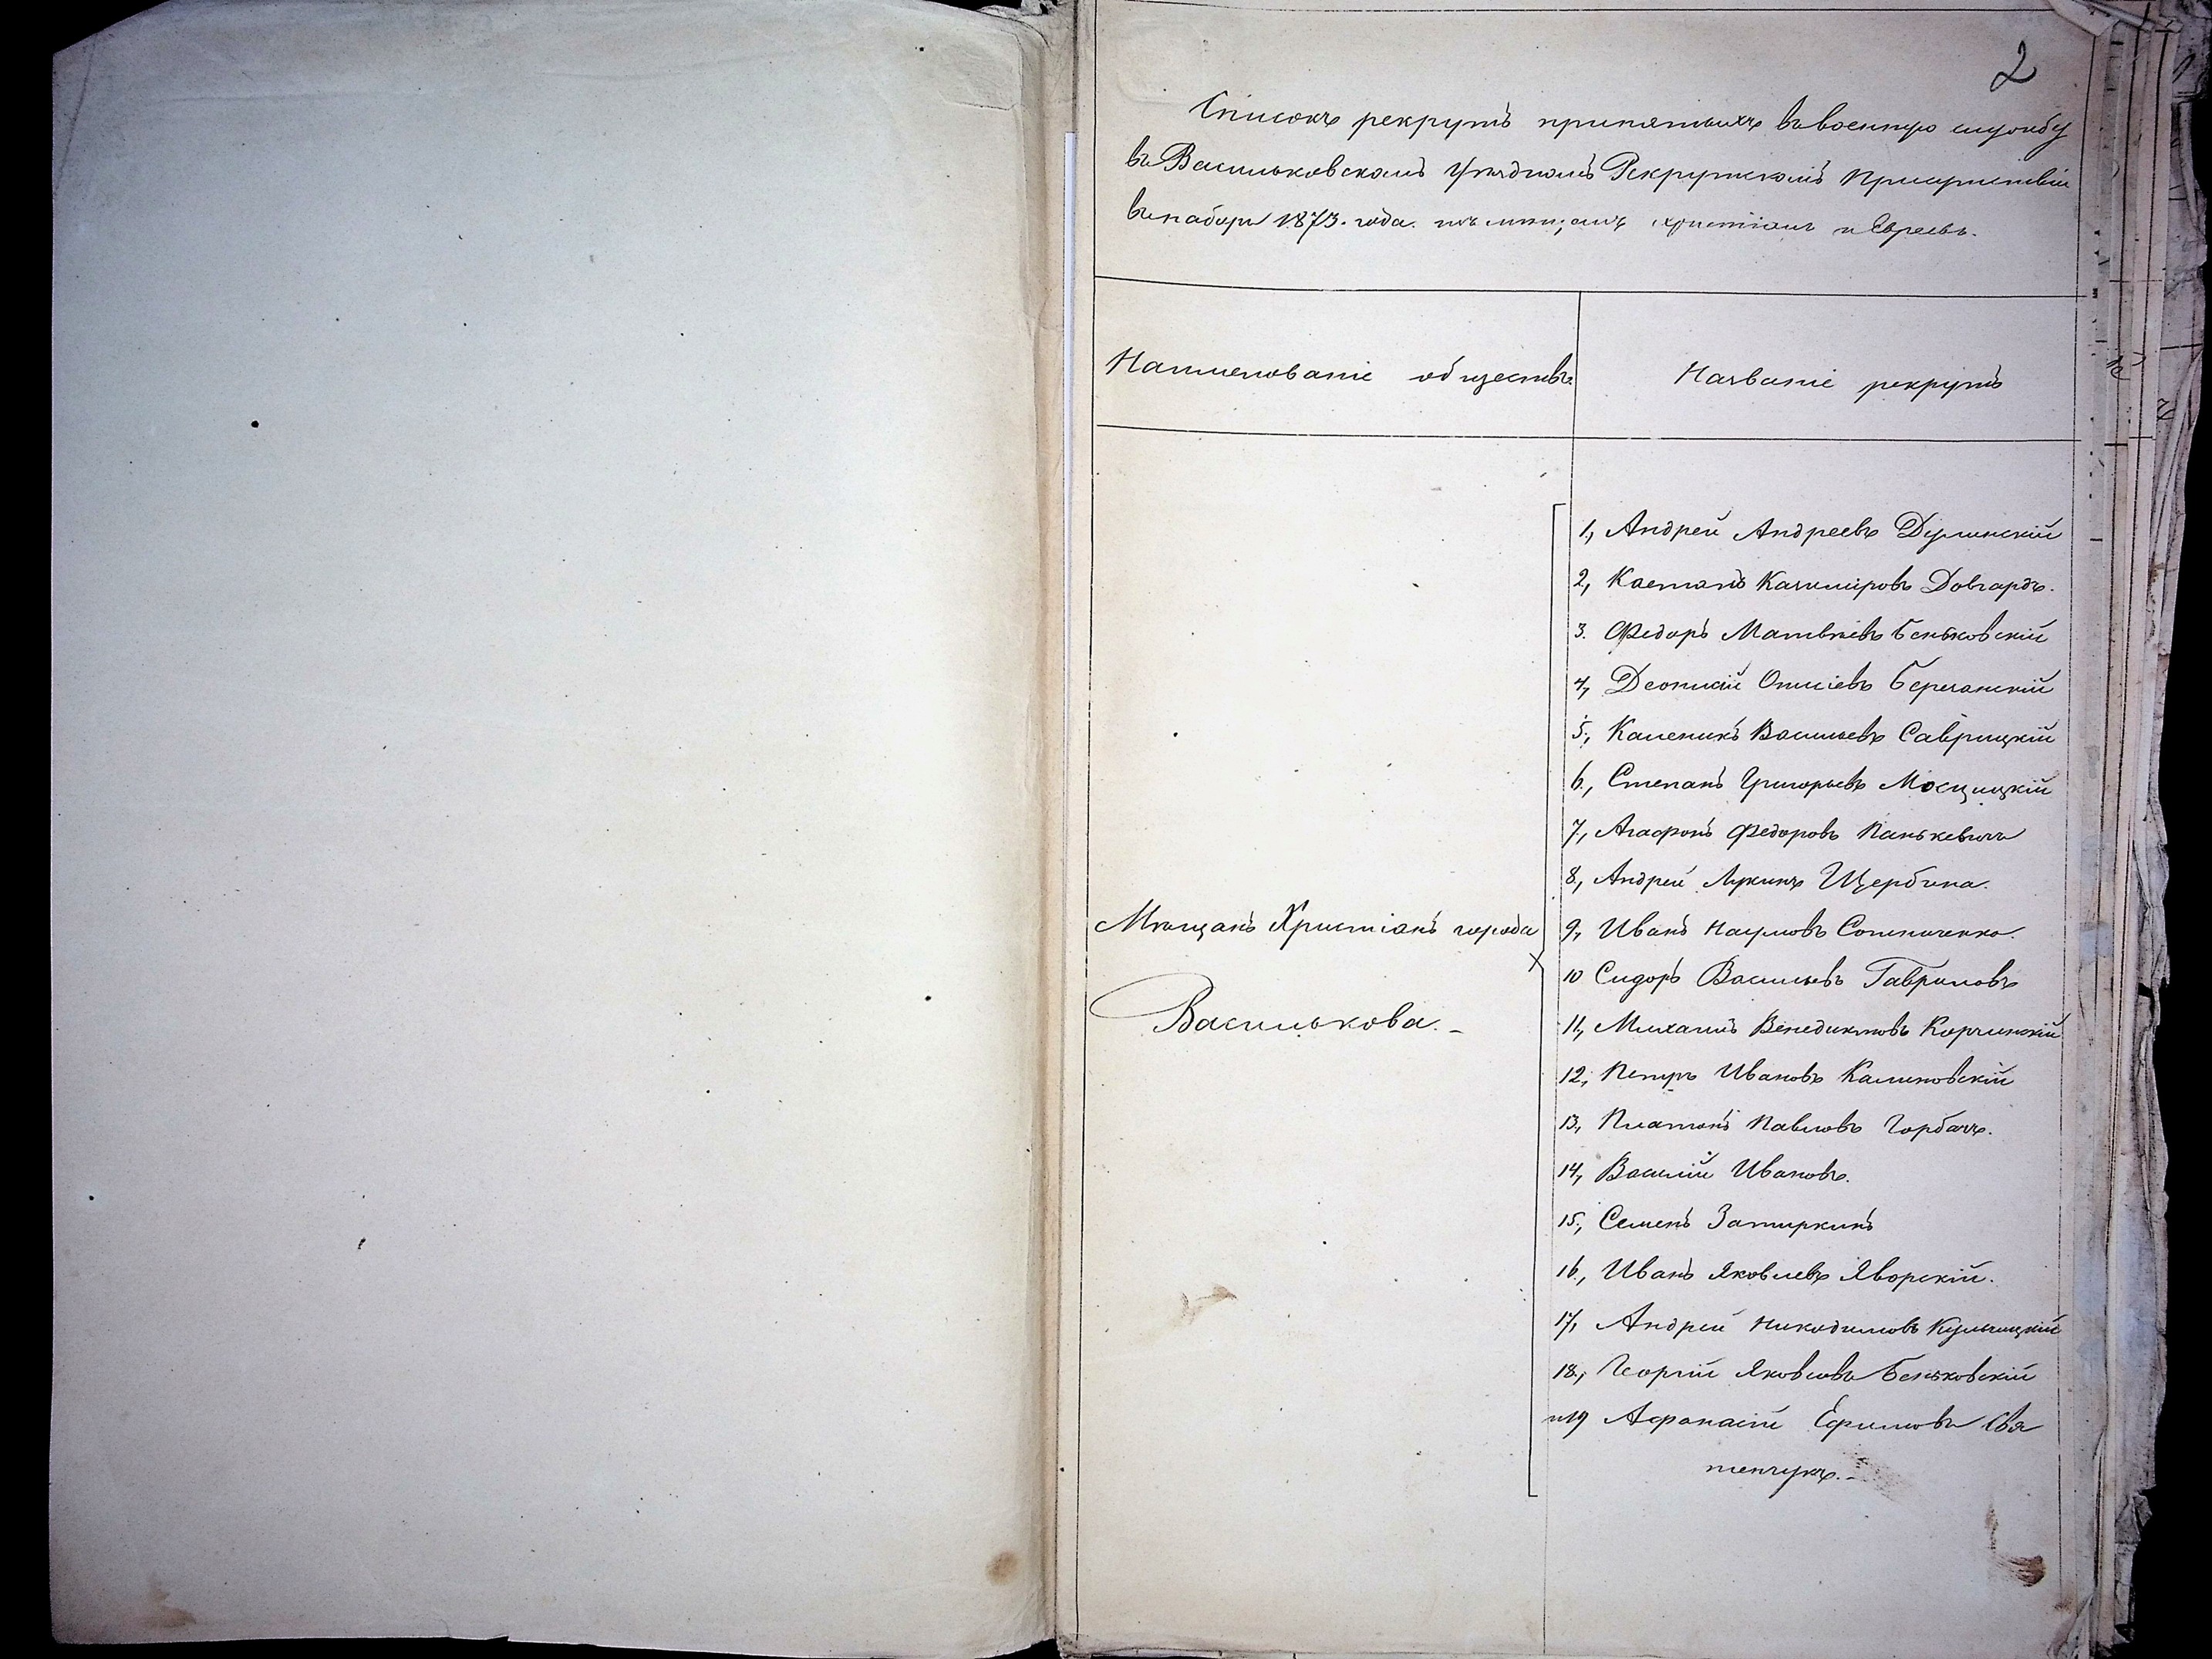 2
Списокъ рекрутъ принятыхъ въ военную службу
въ Васильковскомъ Уѣздномъ Рекрутскомъ Присутствіи
въ наборѣ 1873. года. христіанъ и Евреевъ.
Наименованіе обществъ
Названіе рекрутъ
1, Андрей Андреевъ Дулинскій
2, Каетанъ Казиміровъ Довгардъ.
3. Федоръ Матвѣевъ Беньковскій
4, Деонисій Онисіевъ Березанскій
5, Каленикъ Васильевъ Саврицкій
6, Степанъ Григорьевъ Мосцицкій
7, Агафонъ Федоровъ Панькевичъ
8, Андрей Лукинъ Щербина.
Мѣщанъ Христіанъ города
9, Иванъ Наумовъ Сотниченко.
10 Сидоръ Васильевъ Гавриловъ
Василькова.-
11, Михаилъ Венедиктовъ Корчинскій
12, Петръ Ивановъ Калиновскій
13, Платонъ Павловъ Горбачъ.
14, Василій Ивановъ.
15, Семенъ Затиркинъ
16, Иванъ Яковлевъ Яворскій.
17, Андрей Никодимовъ Кульчицкій
18, Георгій Яковлевъ Беньковскій
и 19 Афанасій Ефимовъ Свя
тенчукъ.-